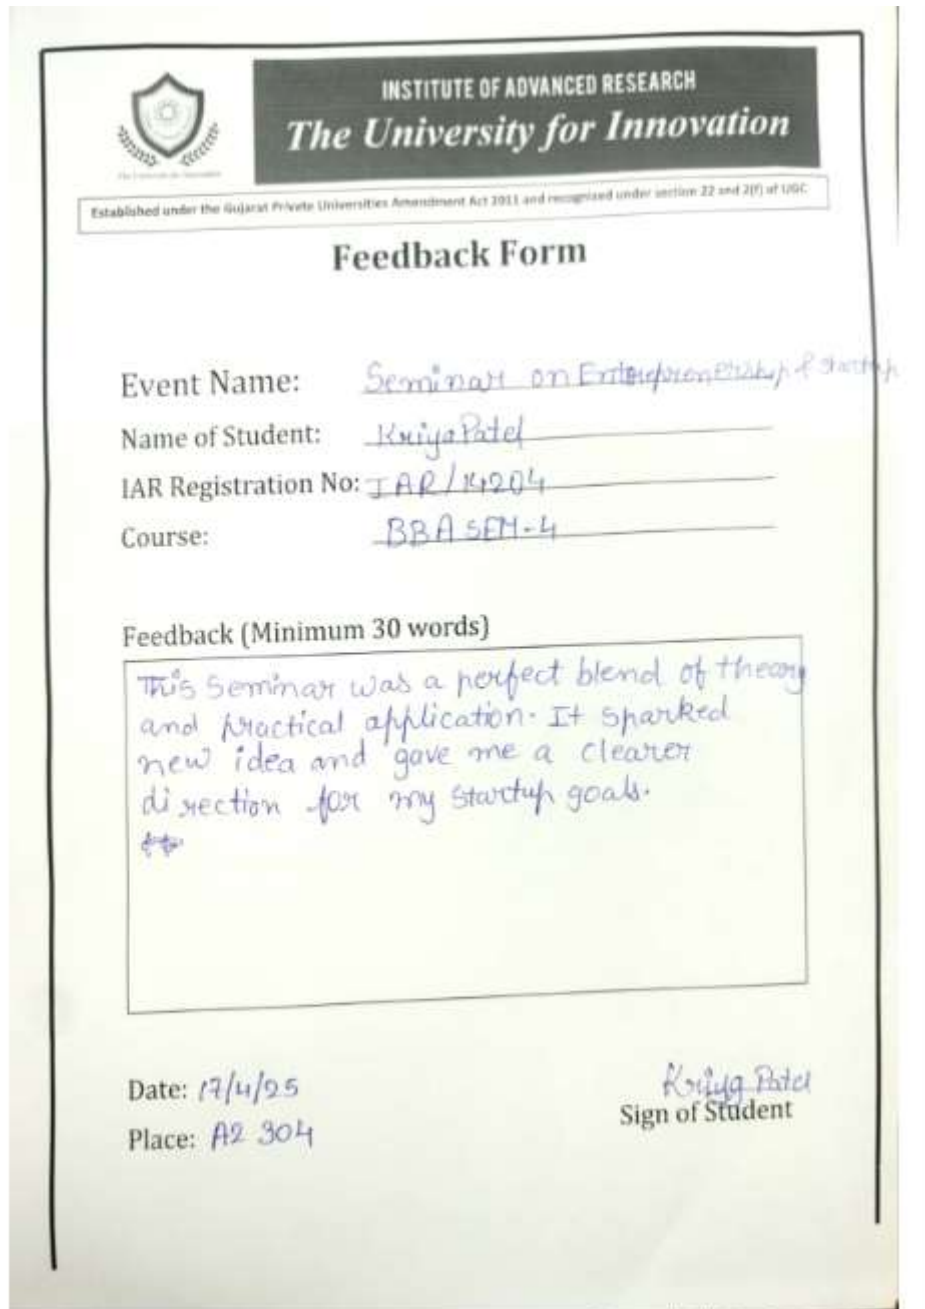 INSTITUTE OF ADVANCED RESEARCH
The University for Innovation
The University for Innovation
Established under the Gujarat Private Universities Amendment Act 2011 and recognized under section 22 and 2(f) of UGC
Feedback Form
Event Name: Seminar on Entrepreneurship & startup
Name of Student: Kriya Patel
IAR Registration No: IAR/14204
Course: BBA SEM-4
Feedback (Minimum 30 words)
This Seminar was a perfect blend of theory
and practical application. It sparked
new idea and gave me a clearer
direction for my startup goals.
Kriya Patel
Date: 17/4/25
Sign of Student
Place: A2 304